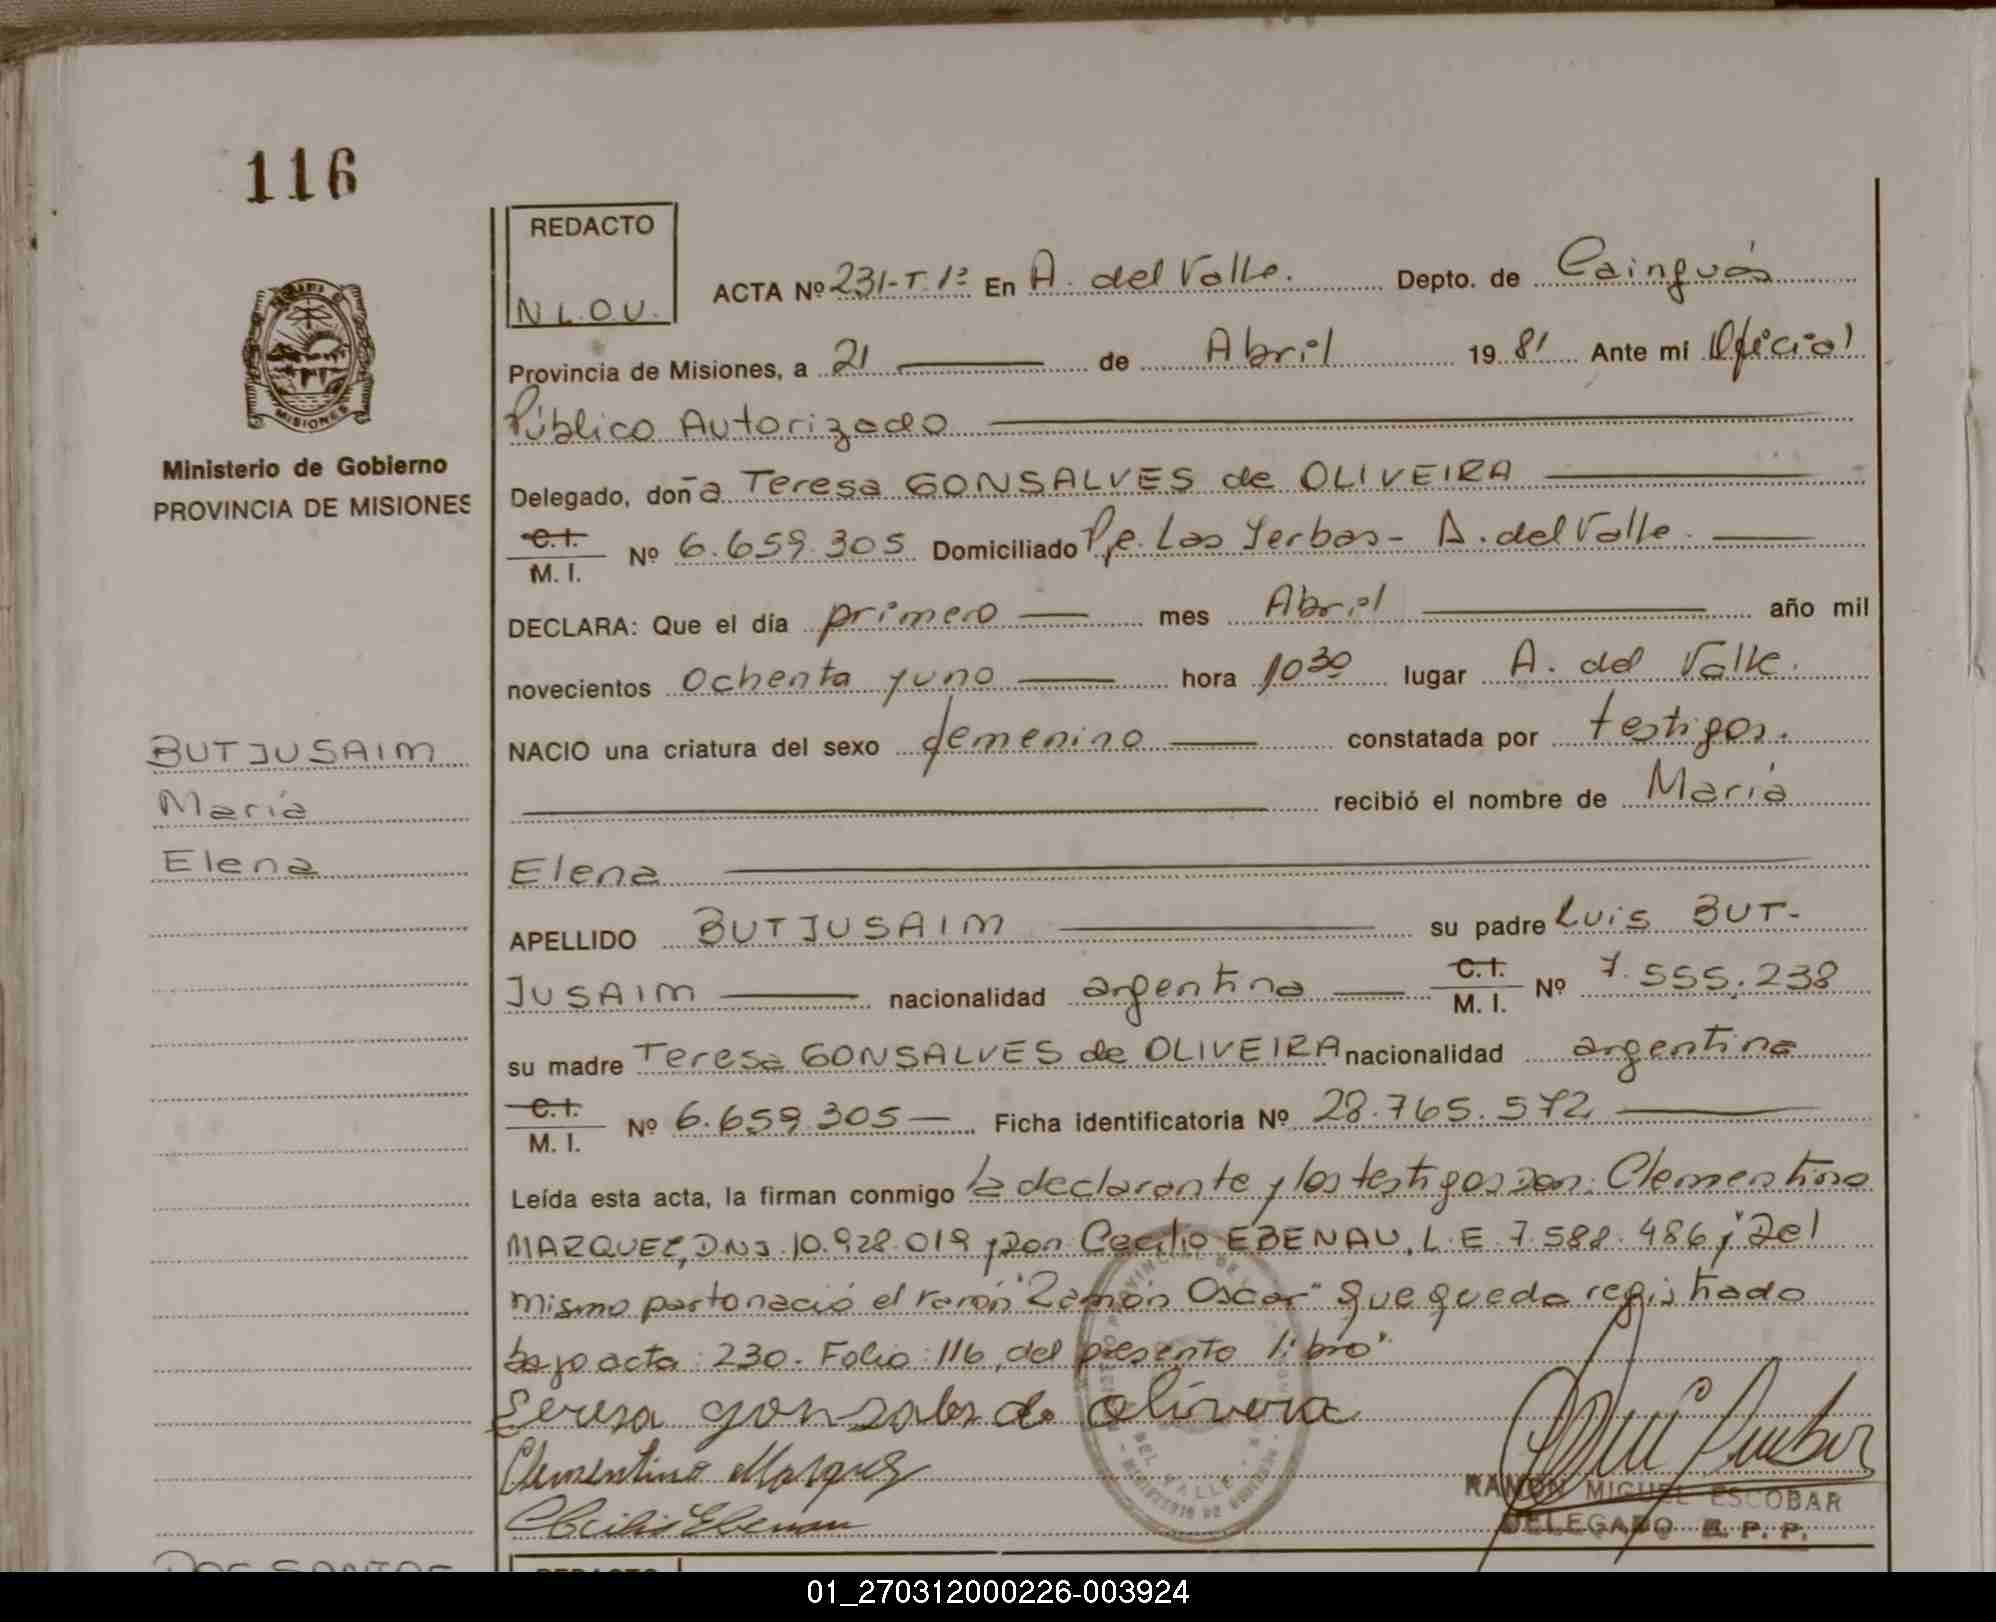 116
REDACTO
N.L.O.V.
ACTA Nº 231-T.1º En A. del Valle. Depto. de Cainguás
Provincia de Misiones, a 21 de Abril 1981 Ante mi Oficial
Público Autorizado
Ministerio de Gobierno
PROVINCIA DE MISIONES
Delegado, doña Teresa GONSALVES de OLIVEIRA
C.I. M. I. Nº 6.659.305 Domiciliado Pje. Las Yerbas - A. del Valle.
DECLARA: Que el día primero mes Abril año mil
novecientos ochenta y uno hora 10 30 lugar A. del Valle.
NACIO una criatura del sexo femenino constatada por testigos.
recibió el nombre de María
Elena
BUTJUSAIM
María
Elena
APELLIDO BUTJUSAIM su padre Luis BUT-
JUSAIM nacionalidad argentina C.I. M. I. Nº 7.555.238
su madre Teresa GONSALVES de OLIVEIRA nacionalidad argentina
C.I. M. I. Nº 6.659.305 Ficha identificatoria Nº 28.765.572
Leída esta acta, la firman conmigo la declarante y los testigos don: Clementino
MARQUEZ, DNI. 10.928.019 y don Cecilio EBENAU, L.E. 7.588.486 y "Del
mismo parto nació el varón "Ramón Oscar" que queda registrado
bajo acta: 230. Folio: 116, del presente libro"
Teresa gonzales de olivera
Clementino Marquez
Cecilio Ebenau
DEL VALLE
RAMON MIGUEL ESCOBAR
DELEGADO R. P. P.
DOS SANTOS
REDACTO
01_270312000226-003924